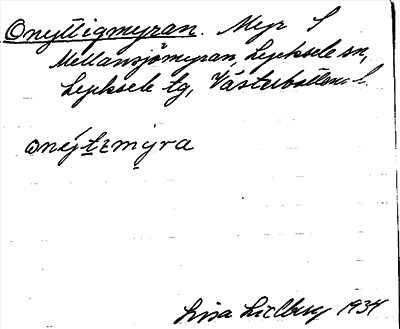 Onyttigmyran. Myr S
Mellansjömyran, Lycksele sn,
Lycksele tg, Västerbottens l.
onýtɛmỳra
Lisa Lidberg 1934